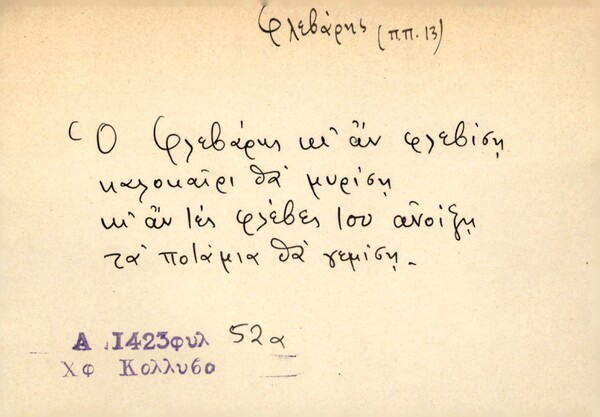 Φλεβάρης (ππ. 13)
Ὁ Φλεβάρης κι' ἂν φλεβίση
καλοκαῖρι θὰ μυρίση
κι' ἂν τὲς φλέβες του ἀνοίξη
τὰ ποτάμια θὰ γεμίση.
Α 1423φυλ 52α
Χφ Κολλυβο